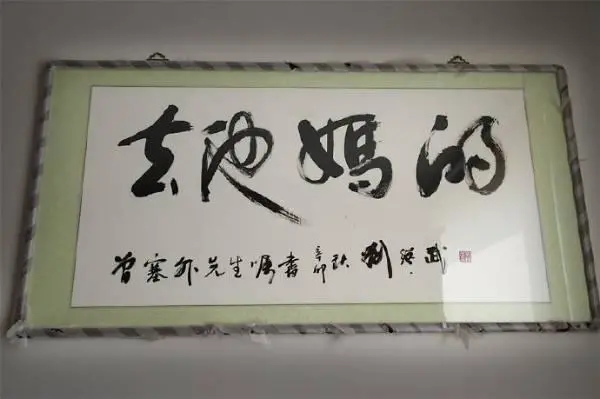 去他媽的
曾塞外先生嘱書辛卯秋劉武